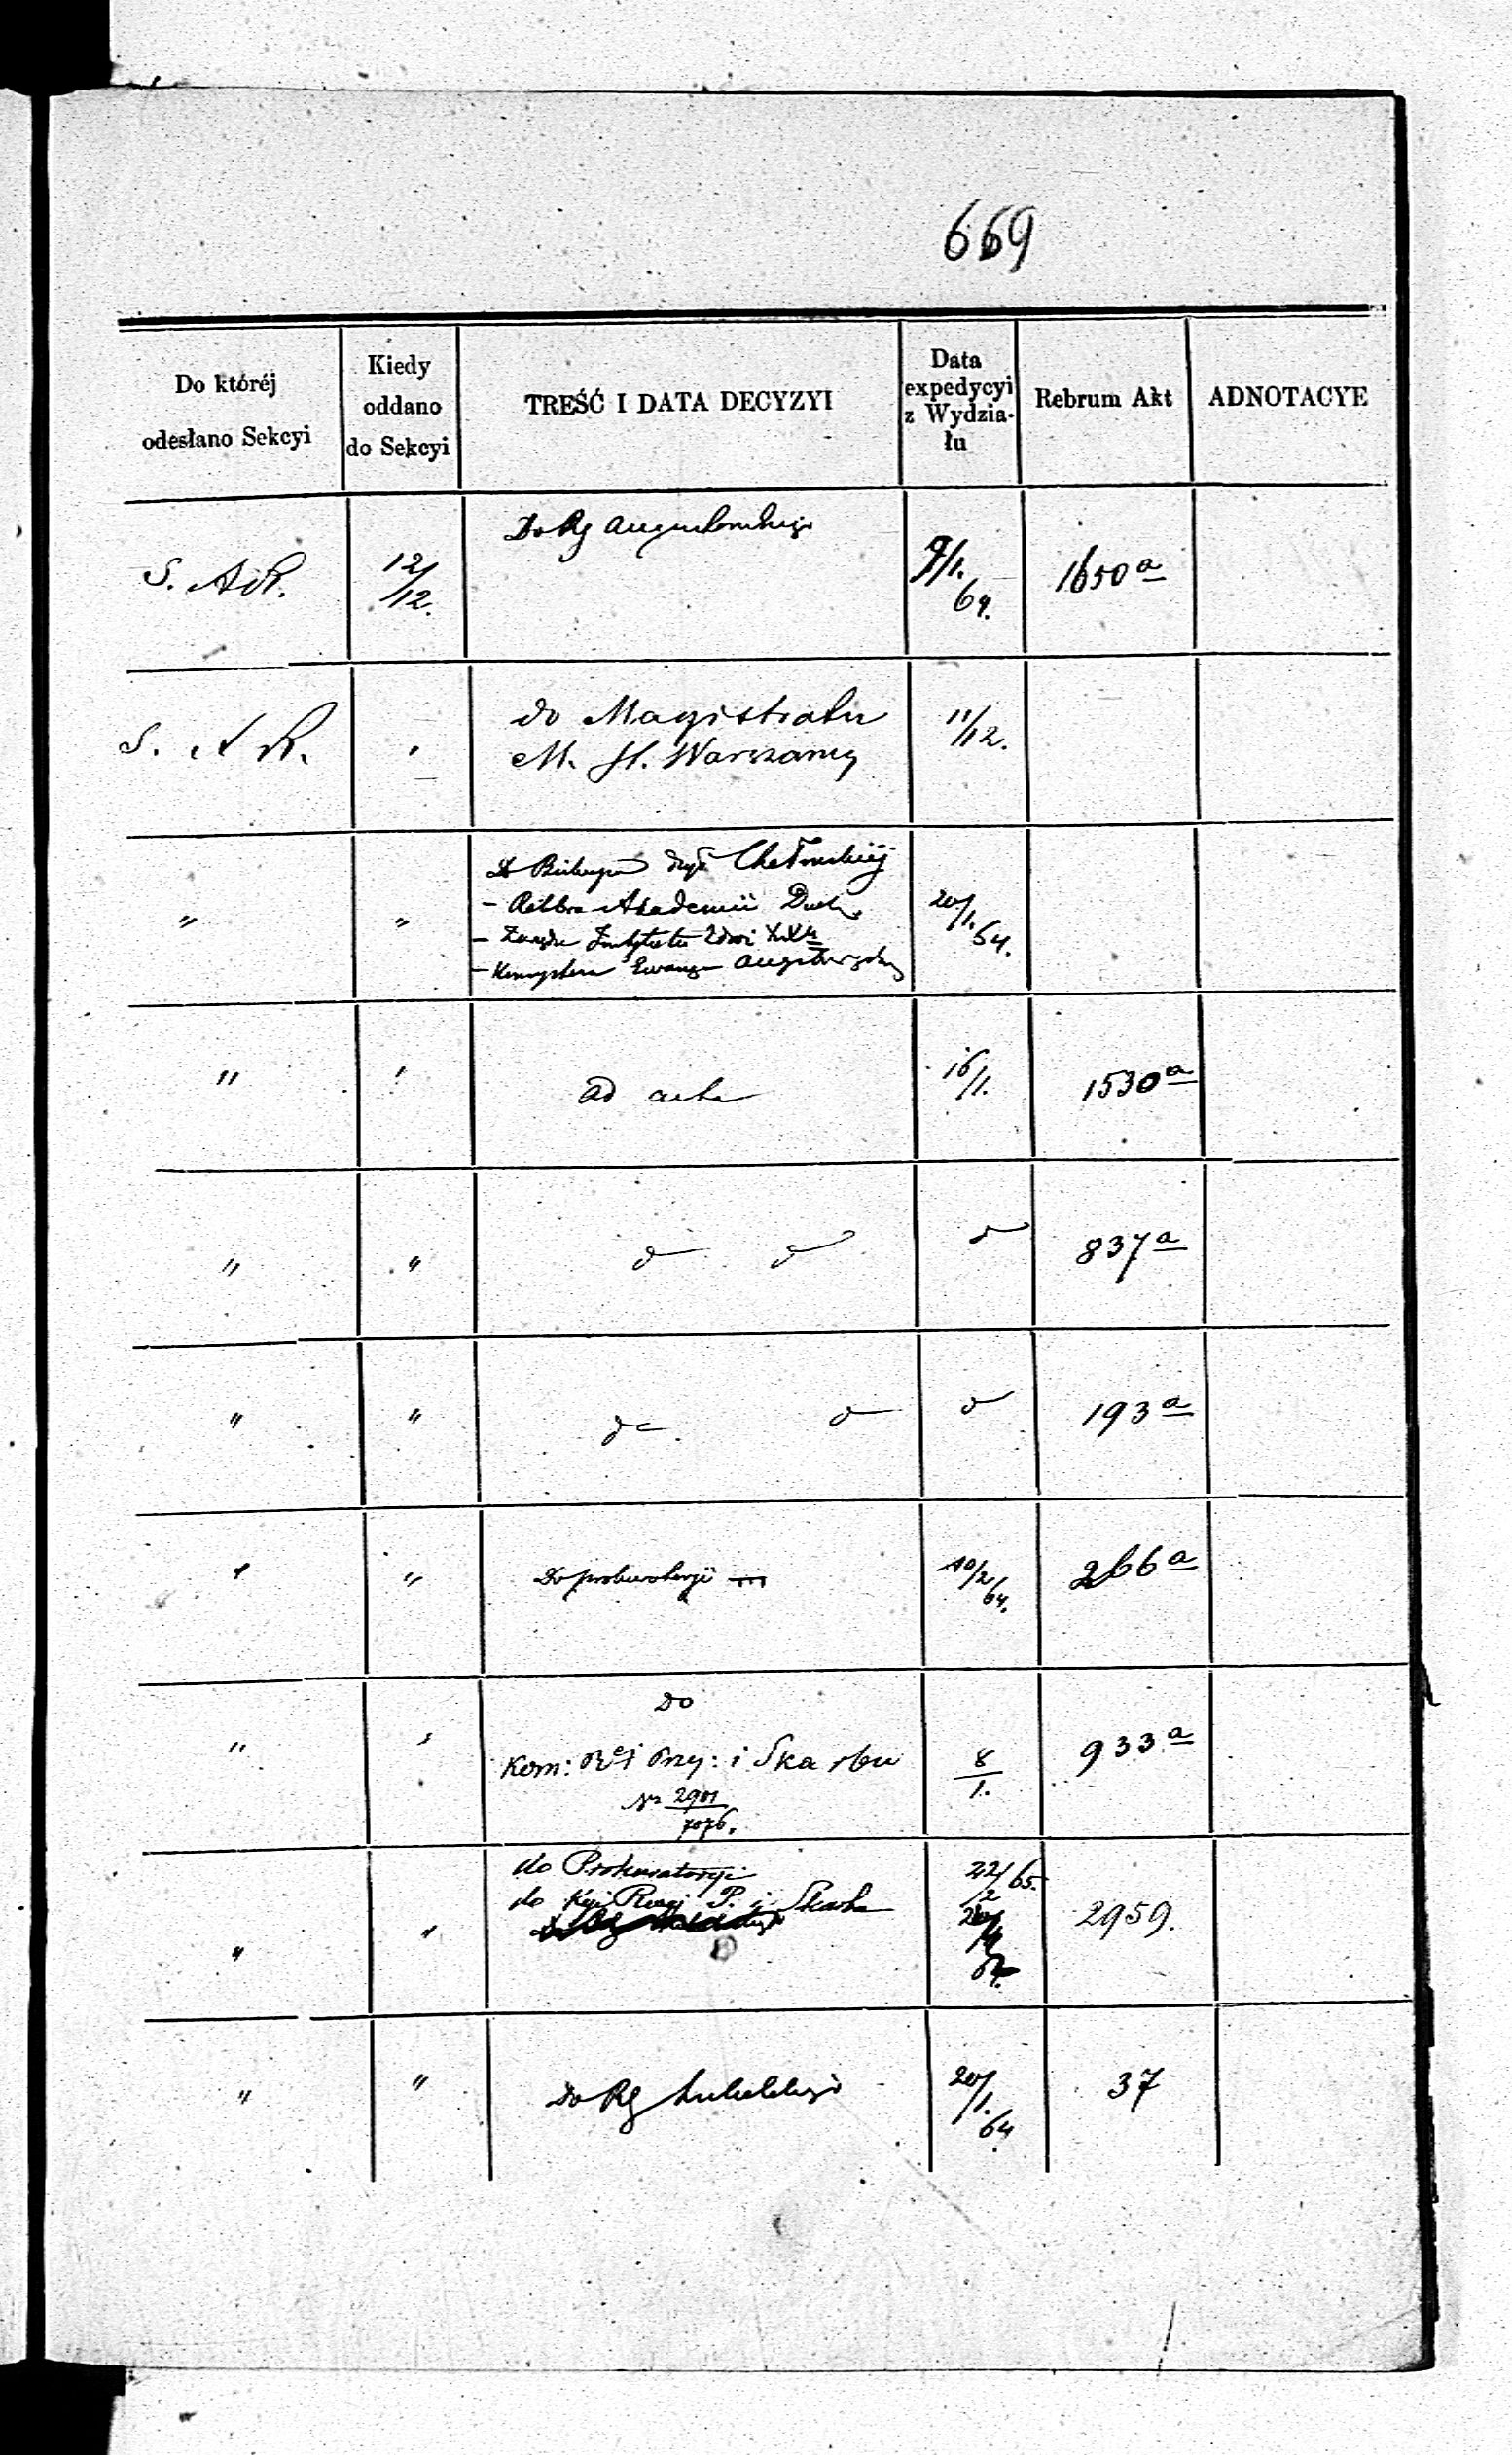 669
Do któréj
odesłano Sekcyi
Kiedy
oddano
do Sekcyi
TREŚĆ I DATA DECYZYI
Data
expedycyi
z Wydzia-
łu
Rebrum Akt
ADNOTACYE
S. A R.
12/12.
Do Rg Augustowskiego
9/1.
64.
1650 a
S. A R.
"
do Magistratu
M. St. Warszawy
11/12.
"
"
Do Biskupa Dyę Chełmskiéj
- Rektora Akademii Duch.
- Instytutu
- Konsystorza Ewang Augsburskieg
20/1.
64.
"
"
ad acta
16/1.
1530 a
"
"
d d
d
837 a
"
"
do d
d
193 a
"
"
Do prokuratoryi
10/2
64.
266 a
"
"
Do
Kom: R i Przy: i Skarbu
No 2901
7076.
8
1.
933 a
"
"
do Prokuratoryi
do Kyi Rząj P. i Skarbu
22/65.
2
2959.
"
"
Do Rg Lubelskiego
20/1.
64
37